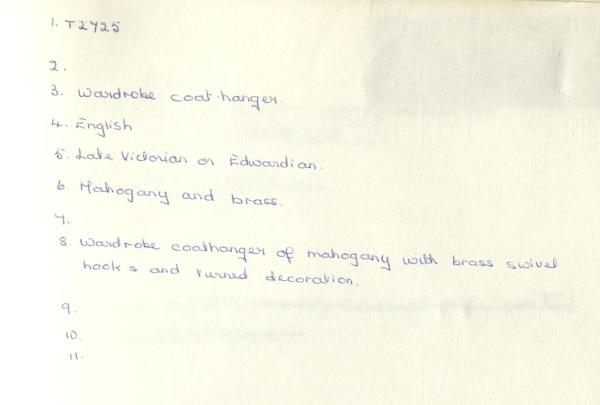 1. T2425
2.
3. Wardrobe coat-hanger.
4. English
5. Late Victorian or Edwardian.
6. Mahogany and brass.
7.
8. Wardrobe coathanger of mahogany with brass swivel
hooks and turned decoration.
9.
10.
11.